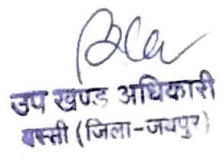 उप खण्ड अधिकारी
बस्सी (जिला-जयपुर)